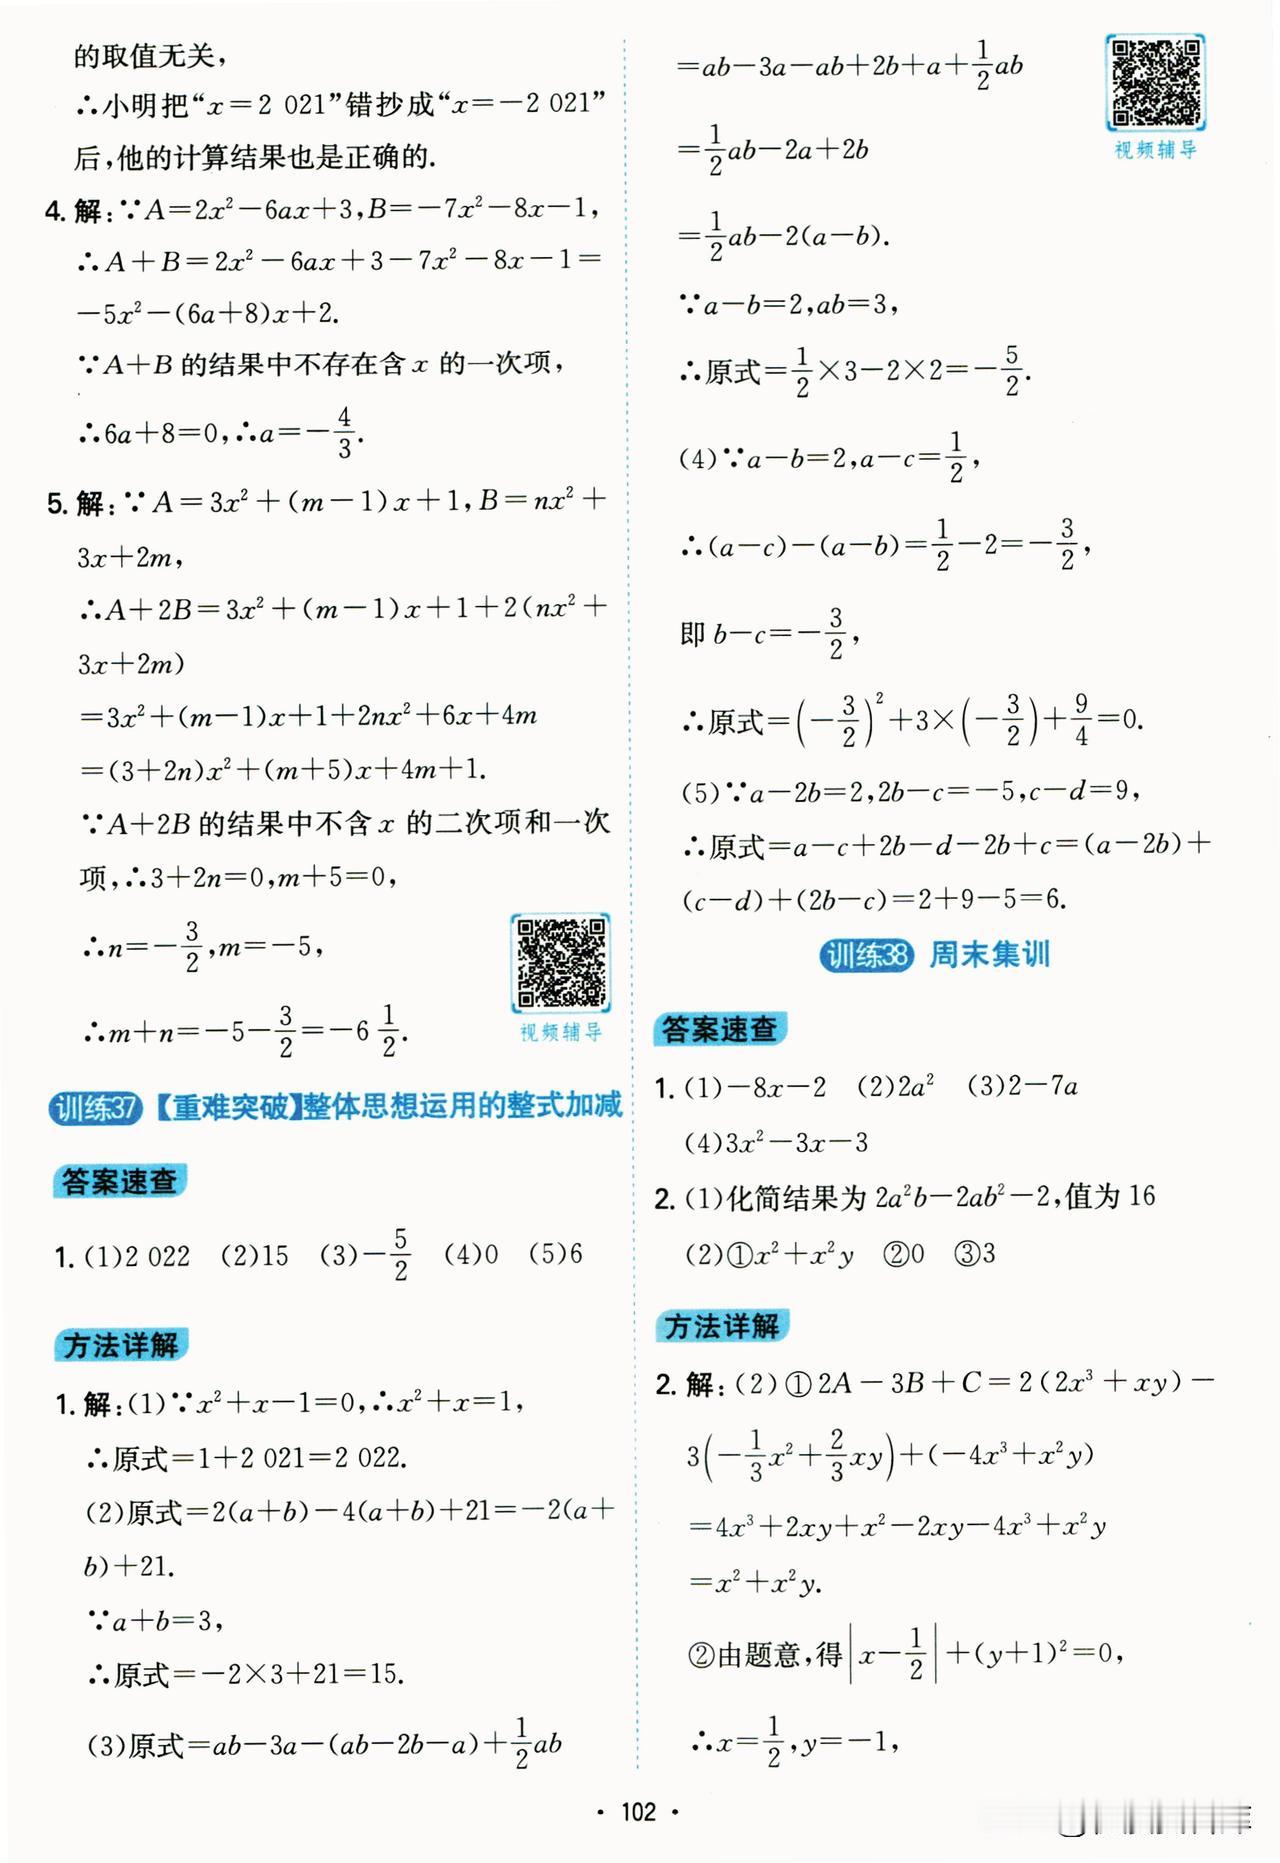 的取值无关，
∴小明把“x=2 021”错抄成“x=-2 021”
后，他的计算结果也是正确的.
4. 解：∵A=2x²-6ax+3，B=-7x²-8x-1，
∴A+B=2x²-6ax+3-7x²-8x-1=
-5x²-(6a+8)x+2.
∵A+B的结果中不存在含x的一次项，
∴6a+8=0，∴a=-4/3.
5. 解：∵A=3x²+(m-1)x+1，B=nx²+
3x+2m，
∴A+2B=3x²+(m-1)x+1+2(nx²+
3x+2m)
=3x²+(m-1)x+1+2nx²+6x+4m
=(3+2n)x²+(m+5)x+4m+1.
∵A+2B的结果中不含x的二次项和一次
项，∴3+2n=0，m+5=0，
∴n=-3/2，m=-5，
∴m+n=-5-3/2=-6 1/2.
视频辅导
训练37 【重难突破】整体思想运用的整式加减
答案速查
1. (1)2 022 (2)15 (3)-5/2 (4)0 (5)6
方法详解
1. 解：(1)∵x²+x-1=0，∴x²+x=1，
∴原式=1+2 021=2 022.
(2)原式=2(a+b)-4(a+b)+21=-2(a+
b)+21.
∵a+b=3，
∴原式=-2×3+21=15.
(3)原式=ab-3a-(ab-2b-a)+1/2ab
=ab-3a-ab+2b+a+1/2ab
视频辅导
=1/2ab-2a+2b
=1/2ab-2(a-b).
∵a-b=2，ab=3，
∴原式=1/2×3-2×2=-5/2.
(4)∵a-b=2，a-c=1/2，
∴(a-c)-(a-b)=1/2-2=-3/2，
即b-c=-3/2，
∴原式=(-3/2)²+3×(-3/2)+9/4=0.
(5)∵a-2b=2，2b-c=-5，c-d=9，
∴原式=a-c+2b-d-2b+c=(a-2b)+
(c-d)+(2b-c)=2+9-5=6.
训练38 周末集训
答案速查
1. (1)-8x-2 (2)2a² (3)2-7a
(4)3x²-3x-3
2. (1)化简结果为2a²b-2ab²-2，值为16
(2)①x²+x²y ②0 ③3
方法详解
2. 解：(2)①2A-3B+C=2(2x³+xy)-
3(-1/3x²+2/3xy)+(-4x³+x²y)
=4x³+2xy+x²-2xy-4x³+x²y
=x²+x²y.
②由题意，得|x-1/2|+(y+1)²=0，
∴x=1/2，y=-1，
· 102 ·